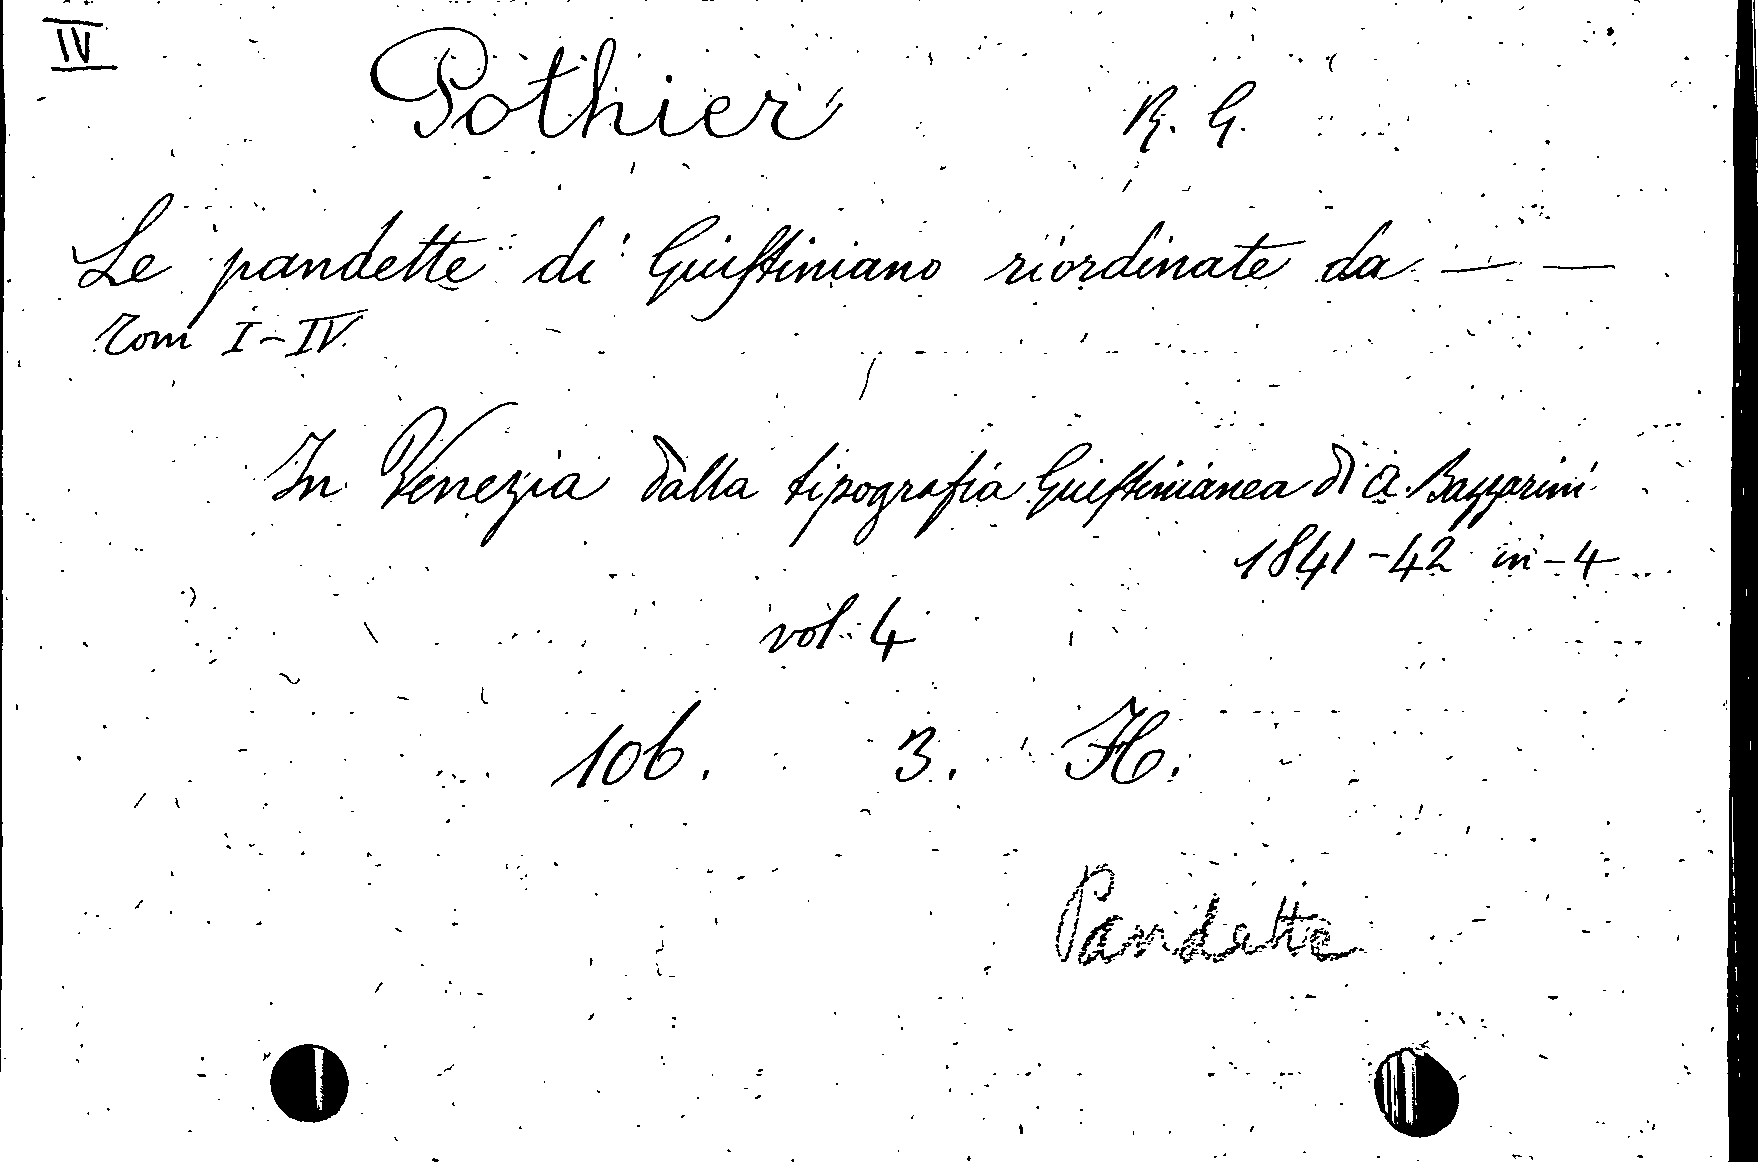 IV
Pothier R. G.
Le pandette di Giustiniano riordinate da — —
Tomi I-IV.
In Venezia dalla tipografia Giustinianea di A. Bazzarini
1841-42 in-4
vol. 4
106. 3. H.
Pandette